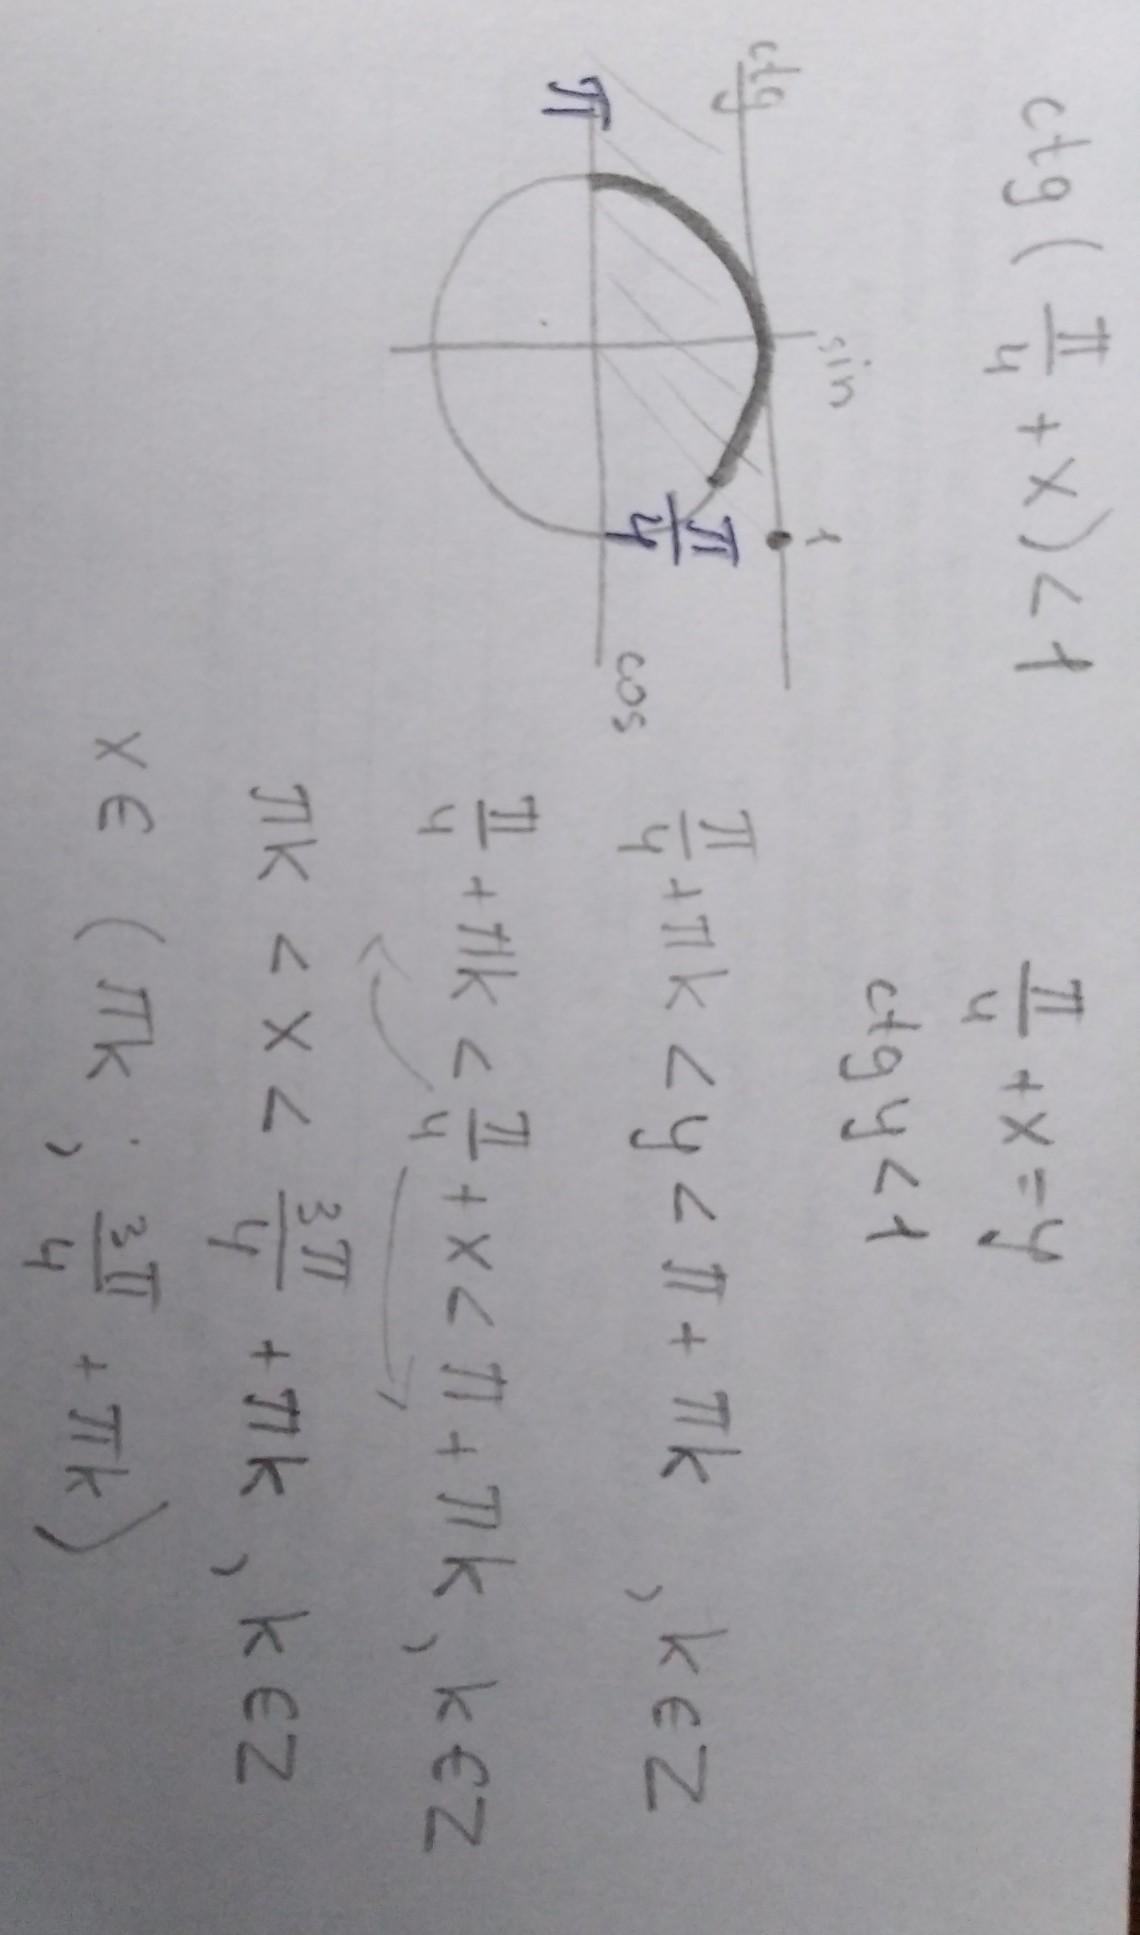 ctg(π/4 + x) < 1
π/4 + x = y
ctg y < 1
ctg
sin
1
π
π/4
cos
π/4 + πk < y < π + πk , k ∈ Z
π/4 + πk < π/4 + x < π + πk , k ∈ Z
πk < x < 3π/4 + πk , k ∈ Z
x ∈ (πk ; 3π/4 + πk)